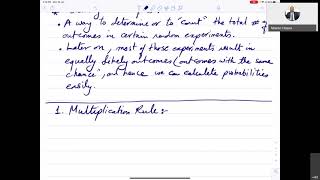 • A way to determine or to "count" the total # of
outcomes in certain random experiments.
• Later on, most of these experiments result in
equally likely outcomes (outcomes with the same
chance", and hence we can calculate probabilities
easily.
1. Multiplication Rule:-